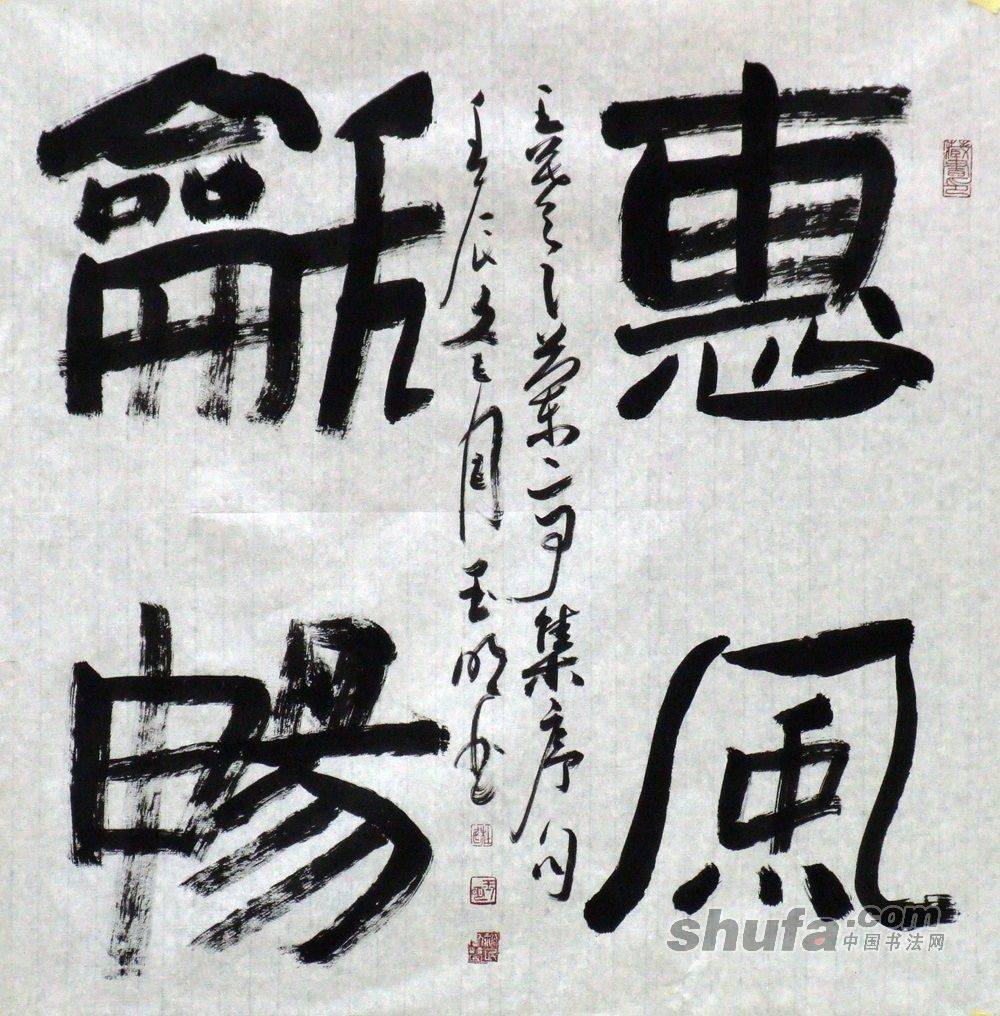 惠風
龢暢
王羲之蘭亭集序句
壬辰冬月玉明書
shufa.com
中国书法网